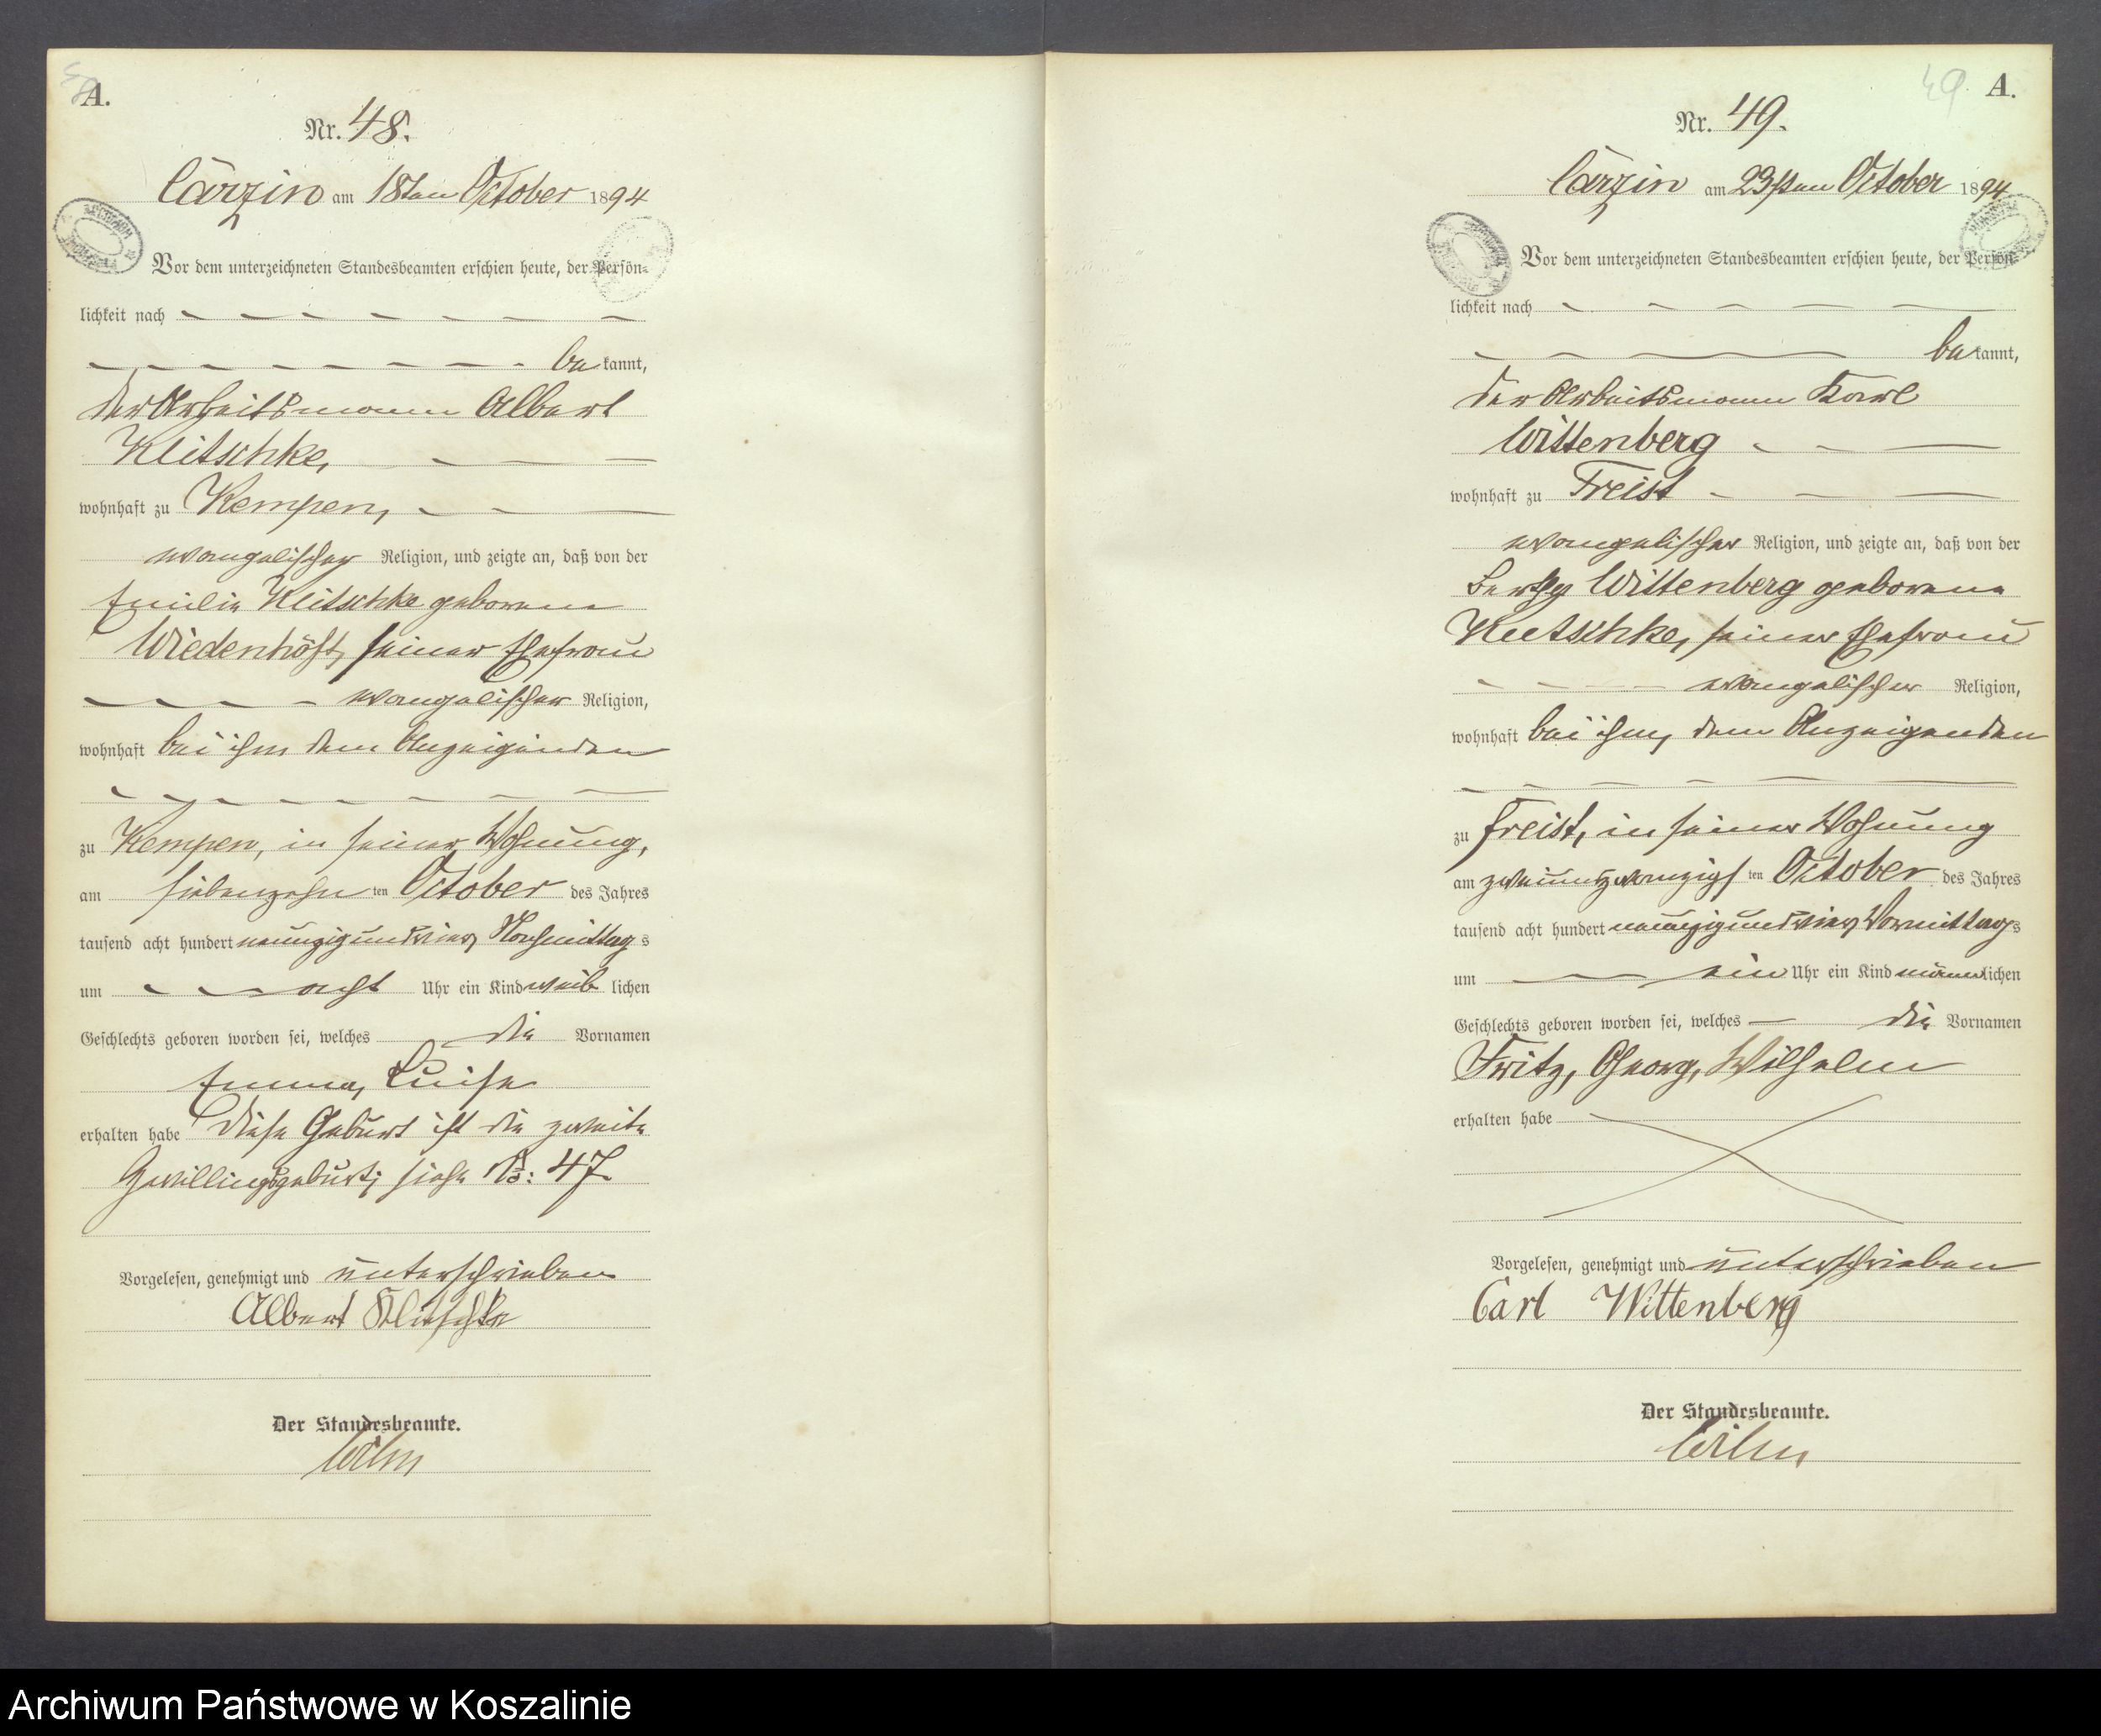 A.
Nr. 48.
Carzin am 18ten October 1894
Vor dem unterzeichneten Standesbeamten erschien heute, der Persön-
lichkeit nach
bekannt,
der Arbeitsmann Albert
Klitschke,
wohnhaft zu Kempen,
evangelischer Religion, und zeigte an, daß von der
Emilie Klitschke geborene
Wiedenhöft, seiner Ehefrau
evangelischer Religion,
wohnhaft bei ihm dem Anzeigenden
zu Kempen, in seiner Wohnung,
am siebenzehn ten October des Jahres
tausend acht hundert neunzig und vier Nachmittag s
um acht Uhr ein Kind weib lichen
Geschlechts geboren worden sei, welches die Vornamen
Emma, Luise
erhalten habe Diese Geburt ist die zweite
Zwillingsgeburt; siehe No: 47.
Vorgelesen, genehmigt und unterschrieben
Albert Klitschke
Der Standesbeamte.
49 A.
Nr. 49.
Carzin am 23sten October 1894
Vor dem unterzeichneten Standesbeamten erschien heute, der Persön-
lichkeit nach
bekannt,
der Arbeitsmann Karl
Wittenberg
wohnhaft zu Freist
evangelischer Religion, und zeigte an, daß von der
Wittenberg geborene
seiner Ehefrau
evangelischer Religion,
wohnhaft bei ihm, dem Anzeigenden
zu Freist, in seiner Wohnung
am zweiundzwanzigs ten October des Jahres
tausend acht hundert neunzig und vier Vormittag s
um ein Uhr ein Kind männlichen
Geschlechts geboren worden sei, welches die Vornamen
Fritz, Georg, Wilhelm
erhalten habe
Vorgelesen, genehmigt und unterschrieben
Carl Wittenberg
Der Standesbeamte.
Archiwum Państwowe w Koszalinie